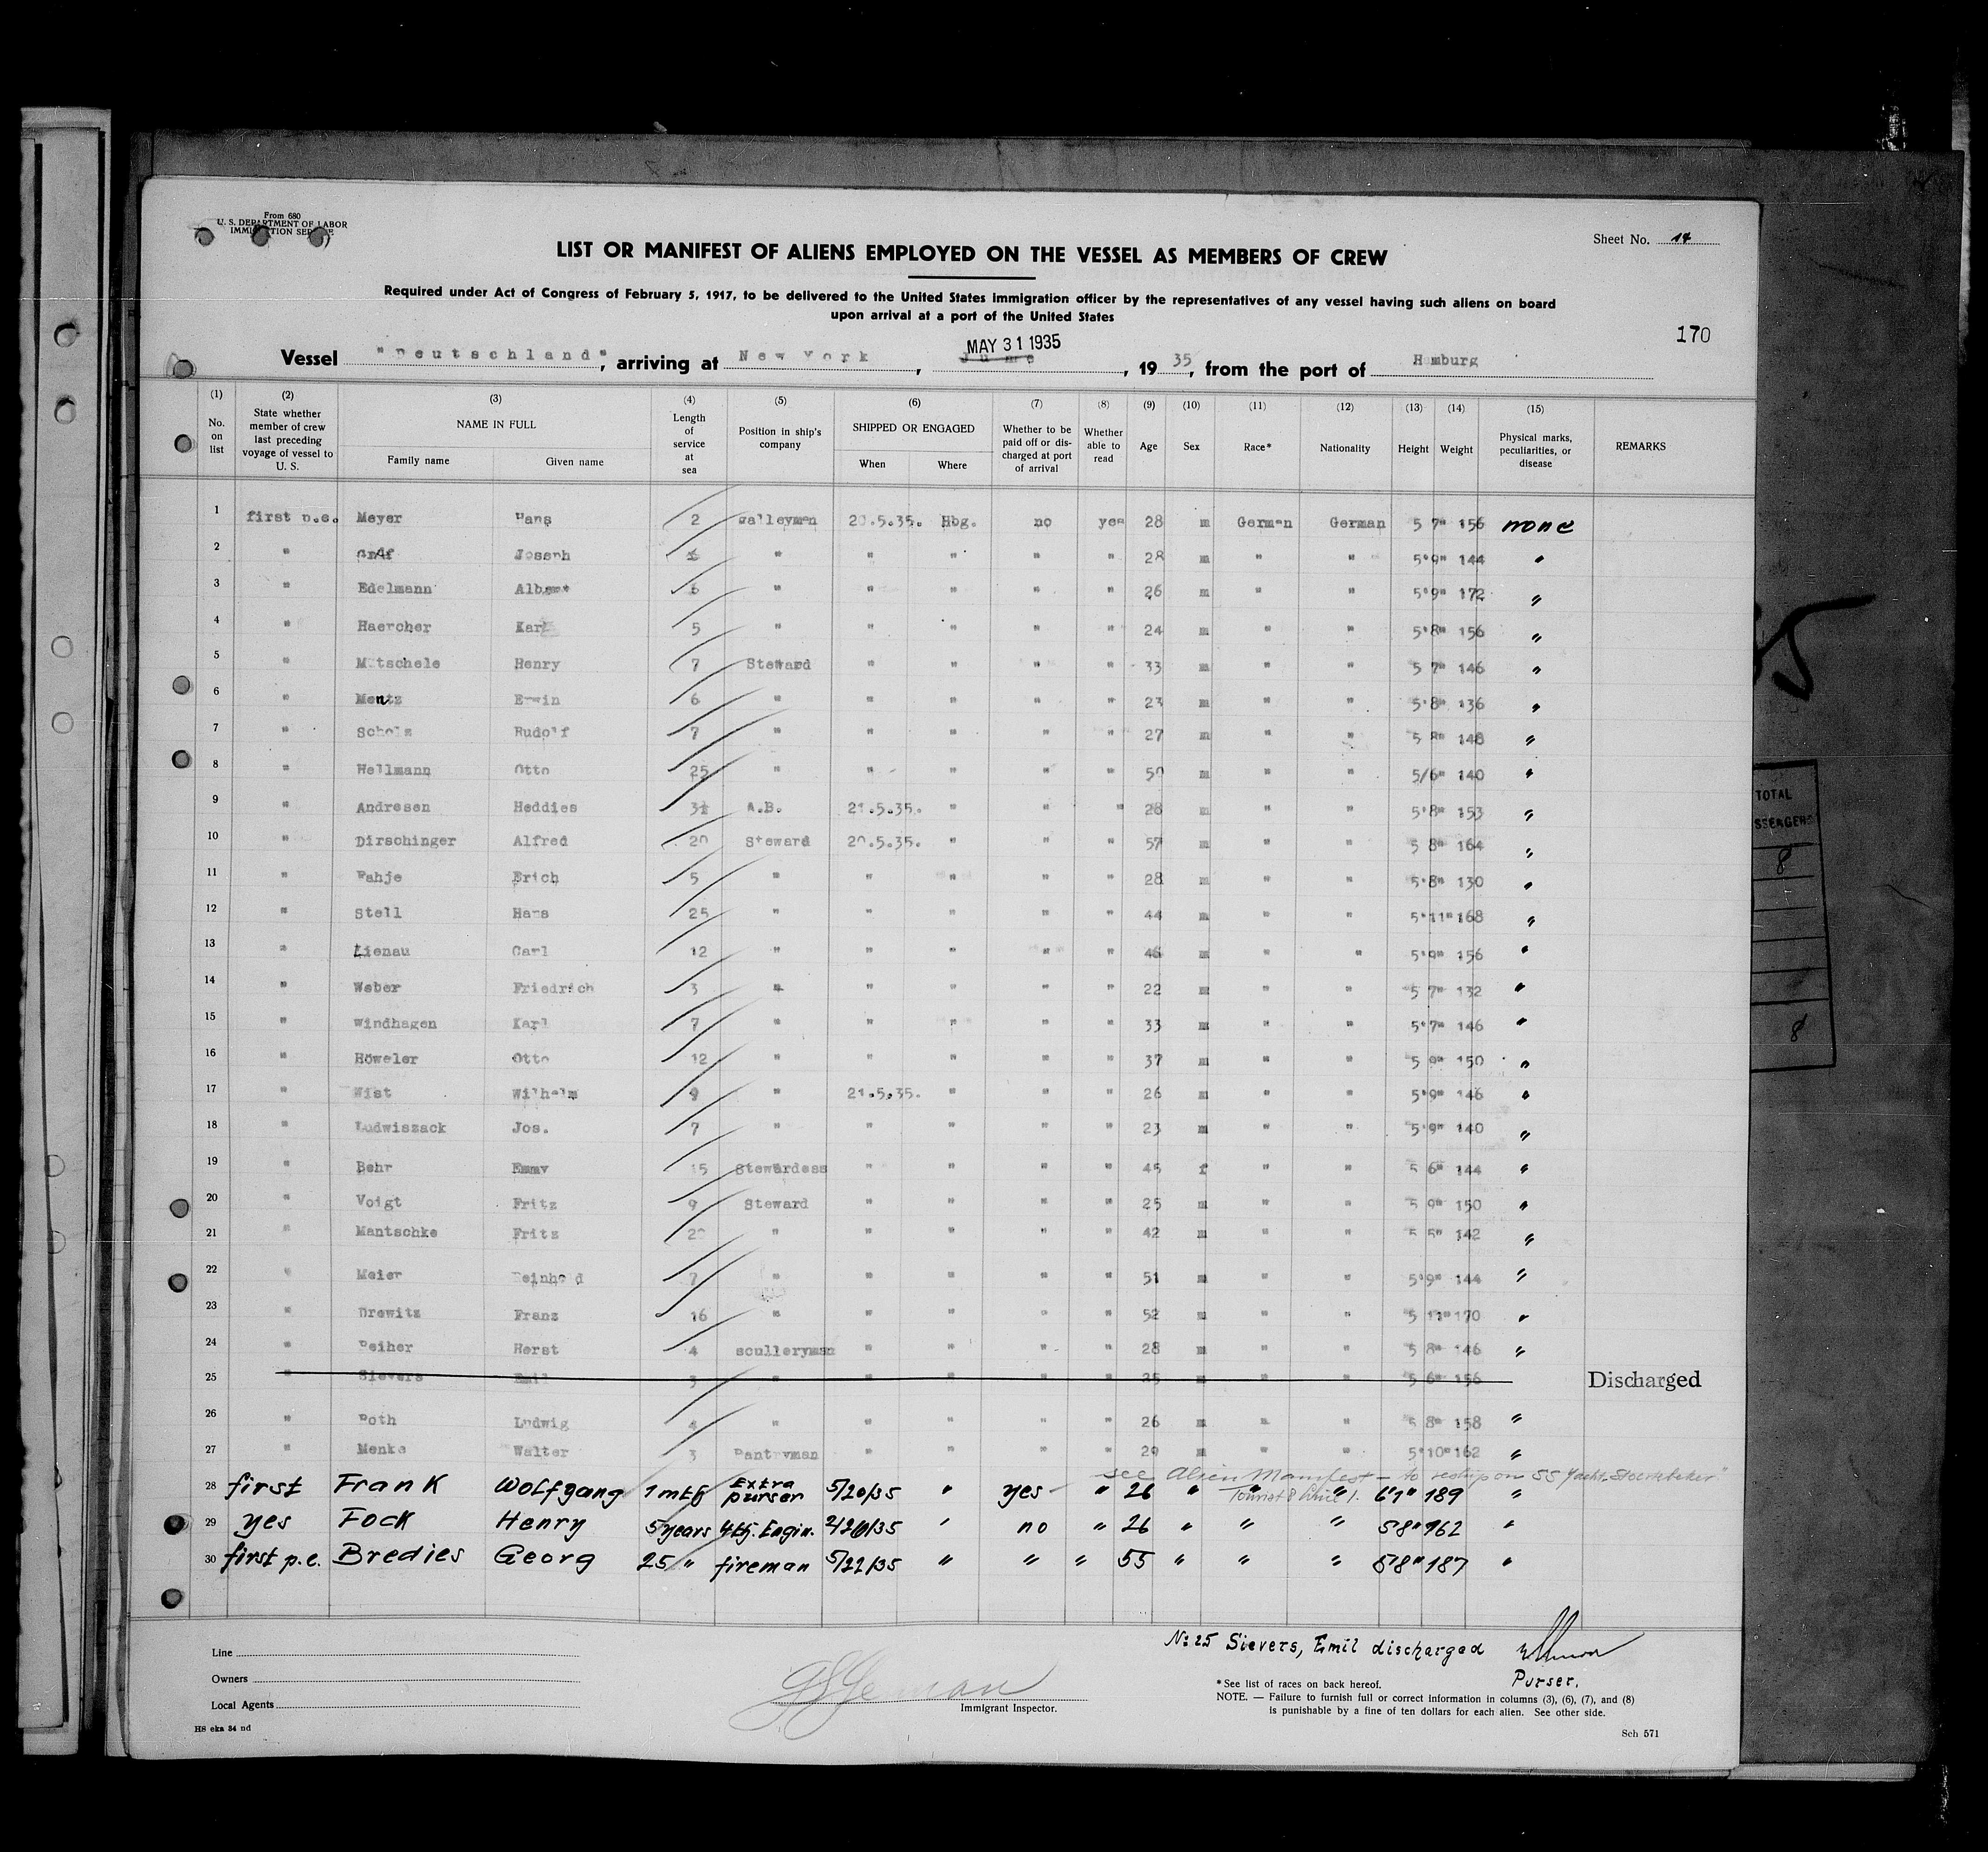 From 680
U. S. DEPARTMENT OF LABOR
IMMIGRATION SERVICE
Sheet No. 14
LIST OR MANIFEST OF ALIENS EMPLOYED ON THE VESSEL AS MEMBERS OF CREW
Required under Act of Congress of February 5, 1917, to be delivered to the United States Immigration officer by the representatives of any vessel having such aliens on board
upon arrival at a port of the United States
170
MAY 31 1935
Vessel "Deutschland", arriving at New York, June, 1935, from the port of Hamburg
(1) (2) (3) (4) (5) (6) (7) (8) (9) (10) (11) (12) (13) (14) (15)
No. on list State whether member of crew last preceding voyage of vessel to U. S. NAME IN FULL Family name Given name Length of service at sea Position in ship's company SHIPPED OR ENGAGED When Where Whether to be paid off or discharged at port of arrival Whether able to read Age Sex Race* Nationality Height Weight Physical marks, peculiarities, or disease REMARKS
1 first p.e. Meyer Hans 2 Galleyman 20.5.35. Hbg. no yes 28 m German German 5 7" 156 none
2 " Graf Joseph " " " " " 28 m " " 5'9" 144 "
3 " Edelmann Albert 6 " " " " " 26 m " " 5'9" 172 "
4 " Haercher Karl 5 " " " " " 24 m " " 5'8" 156 "
5 " Mutschele Henry 7 Steward " " " " 33 m " " 5 7" 146 "
6 " Mentz Erwin 6 " " " " " 23 m " " 5'8" 136 "
7 " Scholz Rudolf 7 " " " " " 27 m " " 5 8" 148 "
8 " Hellmann Otto 25 " " " " " 50 m " " 5/6" 140 "
9 " Andresen Heddies 3½ A.B. 21.5.35. " " " 28 m " " 5'8" 153 "
10 " Dirschinger Alfred 20 Steward 20.5.35. " " " 57 m " " 5 8" 164 "
11 " Pahje Erich 5 " " " " " 28 m " " 5'8" 130 "
12 " Stell Hans 25 " " " " " 44 m " " 5'11" 168 "
13 " Lienau Carl 12 " " " " " 46 m " " 5'9" 156 "
14 " Weber Friedrich 3 " " " " " 22 m " " 5 7" 132 "
15 " Windhagen Karl 7 " " " " " 33 m " " 5'7" 146 "
16 " Höweler Otto 12 " " " " " 37 m " " 5 9" 150 "
17 " Wist Wilhelm 9 " 21.5.35. " " " 26 m " " 5'9" 146 "
18 " Ludwiszack Jos. 7 " " " " " 23 m " " 5'9" 140 "
19 " Behr Emmy 15 Stewardess " " " " 45 f " " 5 6" 144 "
20 " Voigt Fritz 9 Steward " " " " 25 m " " 5 9" 150 "
21 " Mantschke Fritz " " " " " 42 m " " 5 5" 142 "
22 " Meier Reinhold 7 " " " " " 51 m " " 5'9" 144 "
23 " Drewitz Franz 16 " " " " " 52 m " " 5 11" 170 "
24 " Reiher Horst 4 sculleryman " " " " 28 m " " 5 8" 146 "
25 " Sievers Emil 3 " " " " " 25 m " " 5 6" 156 Discharged
26 " Roth Ludwig 4 " " " " " 26 m " " 5 8" 158 "
27 " Menke Walter 3 Pantryman " " " " 29 m " " 5'10" 162 "
see Alien Manifest - to reship on SS Yacht
28 first Frank Wolfgang 1 mth Extra purser 5/20/35 " yes " 26 " " " 6'1" 189 "
29 yes Fock Henry 5 years 4th. Engin. 2/26/35 " no " 26 " " " 5'8" 162 "
30 first p.e. Bredies Georg 25 " fireman 5/22/35 " " " 55 " " " 5'8" 187 "
No: 25 Sievers, Emil discharged
Purser.
Line
Owners
Local Agents
H8 eka 34 nd
Immigrant Inspector.
* See list of races on back hereof.
NOTE. — Failure to furnish full or correct information in columns (3), (6), (7), and (8)
is punishable by a fine of ten dollars for each alien. See other side.
Sch 571
TOTAL
8
8